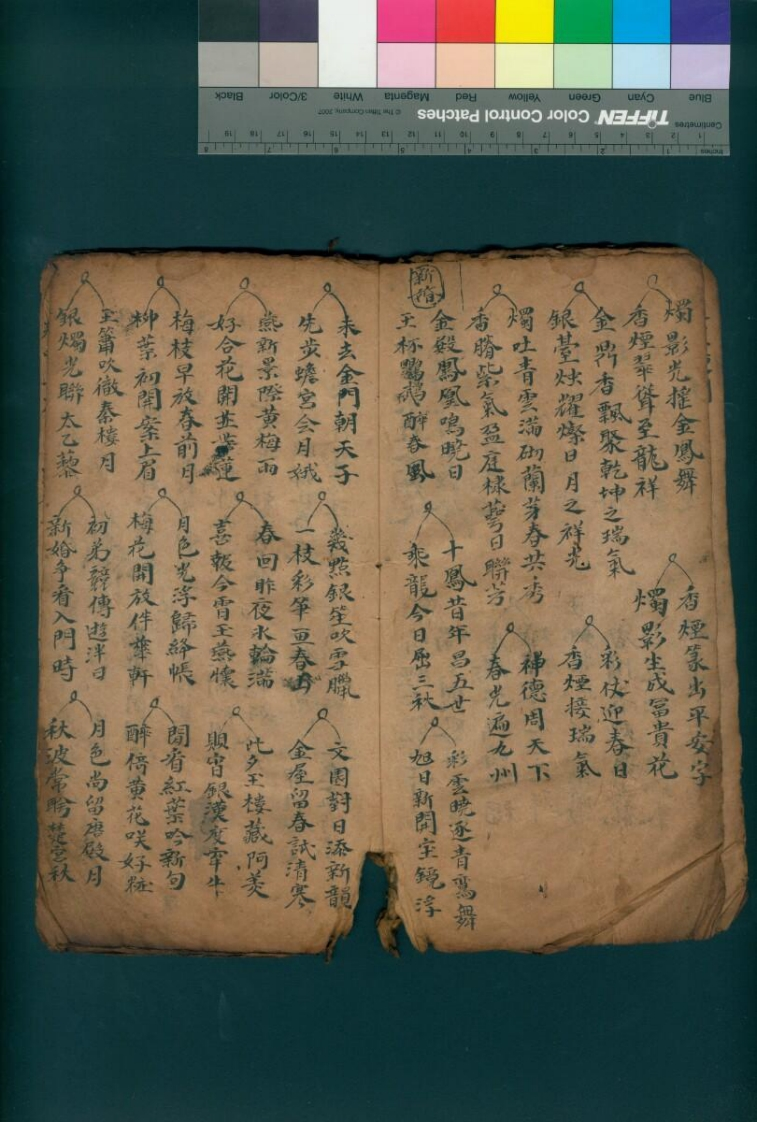 Blue
Cyan
Green
Yellow
Red
Magenta
White
3/Color
Black
TIFFEN Color Control Patches
© The Tiffen Company, 2007
Centimetres
Inches
燭影光搖金鳳舞
香煙翠聳至龍祥
金鼎香飄聚乾坤之瑞氣
銀臺燭耀燦日月之祥光
燭吐青雲滿砌蘭芽春共秀
香騰紫氣盈庭棣萼日聯芳
香煙篆出平安字
燭影生成富貴花
彩仗迎春日
香煙接瑞氣
神德周天下
春光遍九州
新婚
金殿鳳凰鳴曉日
玉杯鸚鵡醉春風
十鳳昔年昌五世
乘龍今日歷三秋
彩雲曉逐青鸞舞
旭日新開宝鏡浮
未去金門朝天子
先步蟾宮会月娥
燕新景際黃梅雨
好合花開並蒂蓮
梅枝早放春前月
柳葉初開案上眉
玉簫吹徹秦樓月
銀燭光聯太乙藜
幾點銀笙吹雪臘
一枝彩筆画春
春回昨夜氷輪滿
喜報今宵玉燕懷
月色光浮歸絳帳
梅花開放伴華軒
初
傳遊泮日
新婚爭看入門時
文園對日添新韻
金屋留春試清寒
此夕玉樓藏阿美
順宵銀漢度牽牛
間看紅葉吟新句
醉倚黃花咲好粧
月色尚留唐殿月
秋波常盼楚宮秋